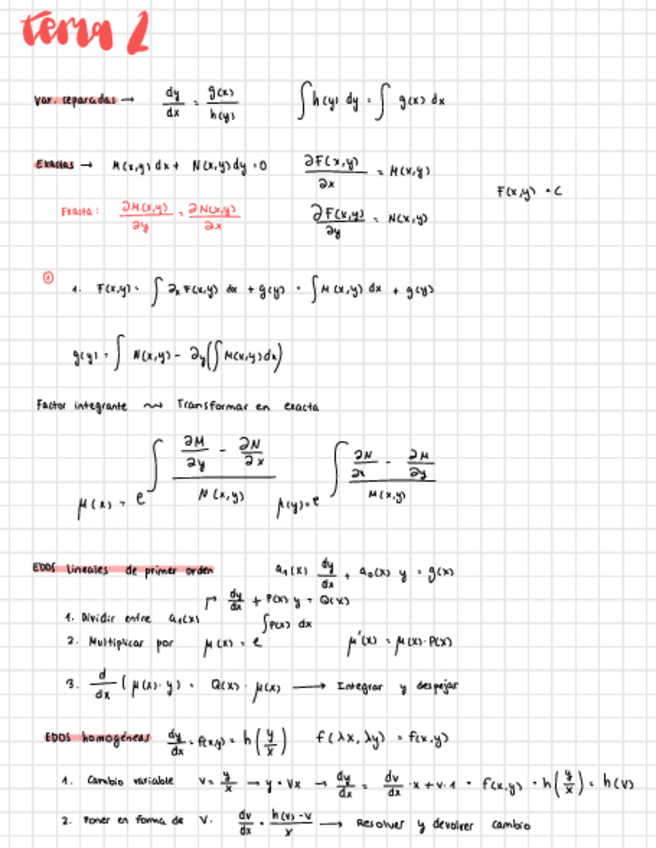 Tema 2
Var. separadas → dy/dx = g(x)/h(y)   ∫ h(y) dy = ∫ g(x) dx
Exactas → M(x,y) dx + N(x,y) dy = 0   ∂F(x,y)/∂x = M(x,y)
F(x,y) = C
Exacta: ∂M(x,y)/∂y = ∂N(x,y)/∂x   ∂F(x,y)/∂y = N(x,y)
① 1. F(x,y) = ∫ ∂x F(x,y) dx + g(y) = ∫ M(x,y) dx + g(y)
g(y) = ∫ N(x,y) - ∂y(∫ M(x,y) dx)
Factor integrante ⇝ Transformar en exacta
μ(x) = e^∫ (∂M/∂y - ∂N/∂x)/N(x,y)   μ(y) = e^∫ (∂N/∂x - ∂M/∂y)/M(x,y)
EDOS lineales de primer orden   a₁(x) dy/dx + a₀(x) y = g(x)
1. Dividir entre a₁(x) ↱ dy/dx + P(x) y = Q(x)
2. Multiplicar por μ(x) = e^∫P(x) dx   μ'(x) = μ(x)·P(x)
3. d/dx (μ(x)·y) = Q(x)·μ(x) ⟶ Integrar y despejar
EDOS homogéneas dy/dx = f(x,y) = h(y/x)   f(λx, λy) = f(x,y)
1. Cambio variable v = y/x → y = vx → dy/dx = dv/dx · x + v·1 = f(x,y) = h(y/x) = h(v)
2. Poner en forma de v. dv/dx = h(v)-v/x ⟶ Resolver y devolver cambio